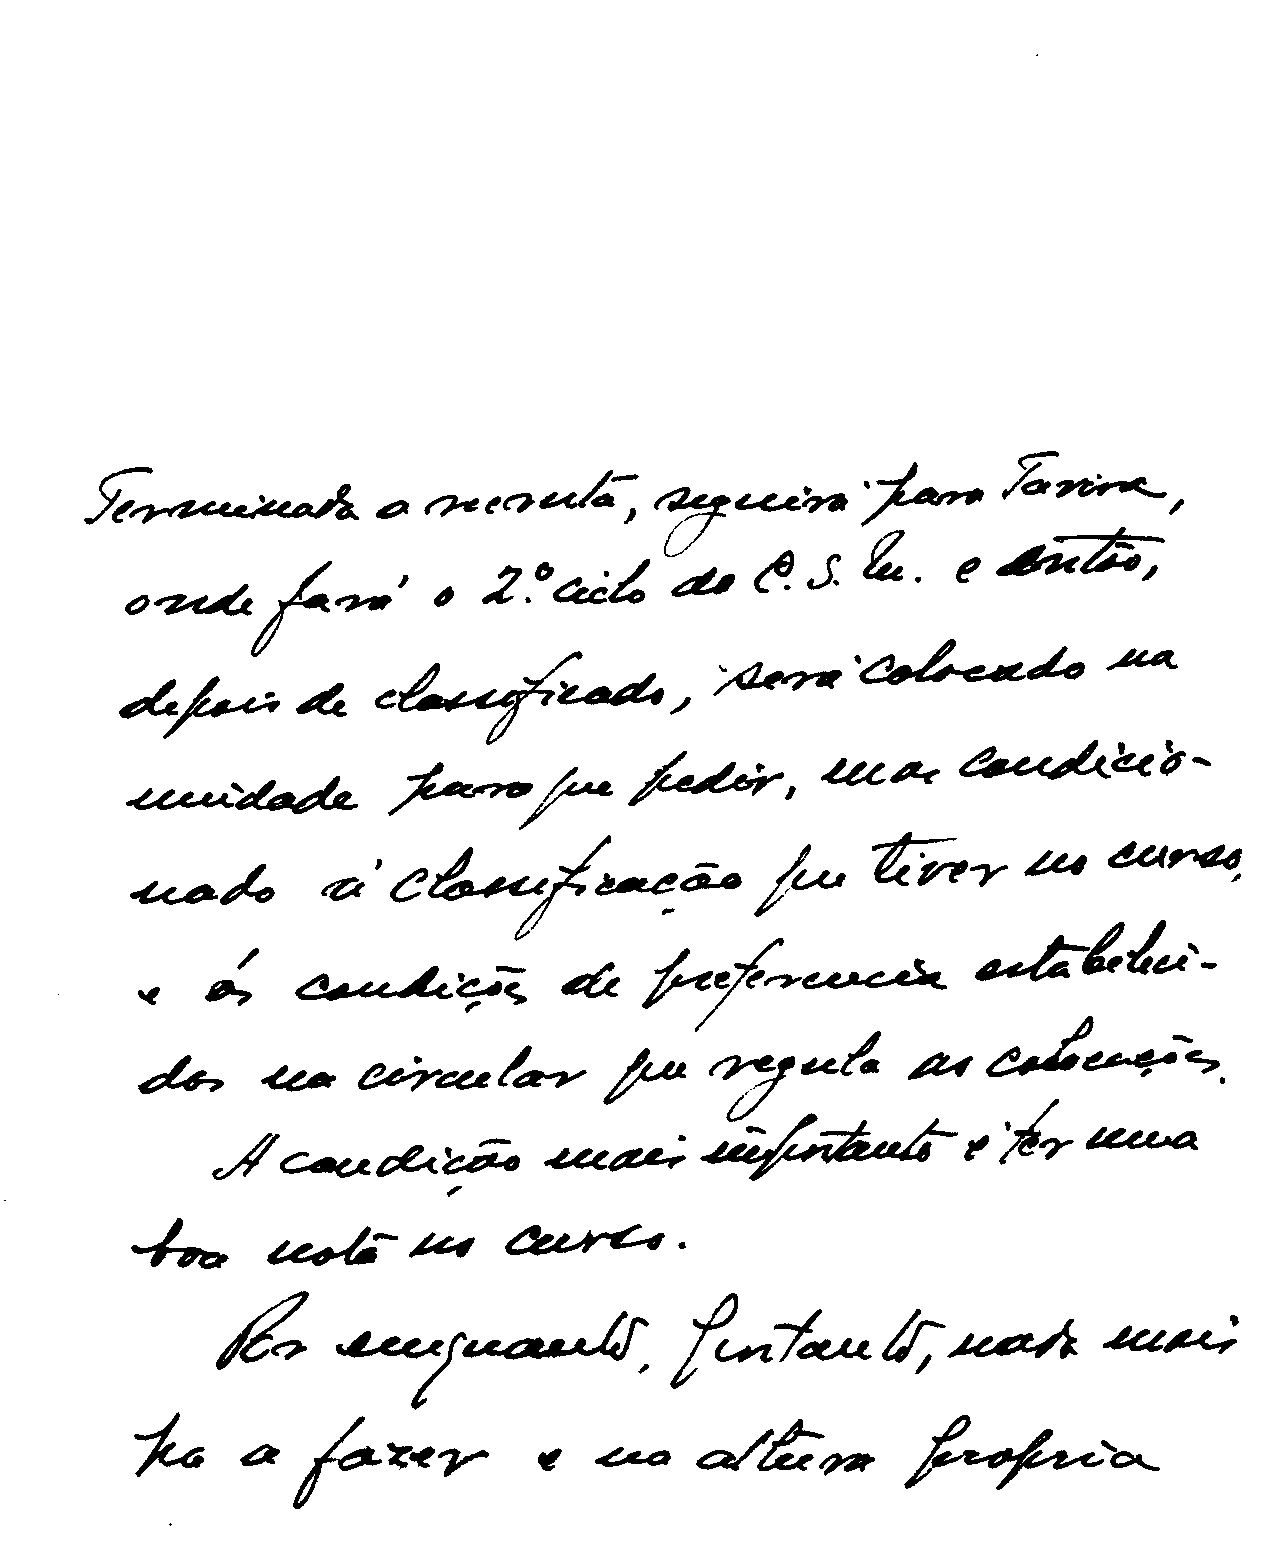 Terminada a recruta, seguirá para Tavira,
onde fará o 2.º ciclo do C. S. M. e então,
depois de classificado, será colocado na
unidade para que pedir, mas condicio-
nado á classificação que tiver no curso,
e ás condições de preferencia estabeleci-
das na circular que regula as colocações.
A condição mais importante é ter uma
boa nota no curso.
Por enquanto, portanto, nada mais
ha a fazer e na altura propria